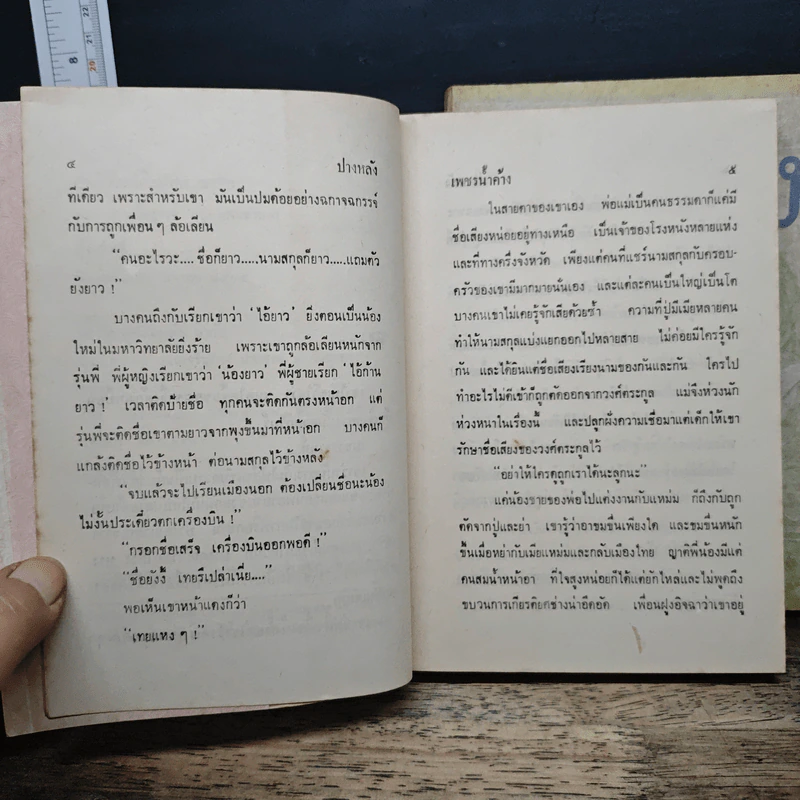 ๔ ปางหลัง
ทีเดียว เพราะสำหรับเขา มันเป็นปมด้อยอย่างฉกาจฉกรรจ์
กับการถูกเพื่อน ๆ ล้อเลียน
“คนอะไรวะ.... ชื่อก็ยาว.....นามสกุลก็ยาว.....แถมตัว
ยังยาว !”
บางคนถึงกับเรียกเขาว่า ‘ไอ้ยาว’ ยิ่งตอนเป็นน้อง
ใหม่ในมหาวิทยาลัยยิ่งร้าย เพราะเขาถูกล้อเลียนหนักจาก
รุ่นพี่ พี่ผู้หญิงเรียกเขาว่า ‘น้องยาว’ พี่ผู้ชายเรียก ‘ไอ้ก้าน
ยาว !’ เวลาติดป้ายชื่อ ทุกคนจะติดกันตรงหน้าอก แต่
รุ่นพี่จะติดชื่อเขาตามยาวจากพุงขึ้นมาที่หน้าอก บางคนก็
แกล้งติดชื่อไว้ข้างหน้า ต่อนามสกุลไว้ข้างหลัง
“จบแล้วจะไปเรียนเมืองนอก ต้องเปลี่ยนชื่อนะน้อง
ไม่งั้นประเดี๋ยวตกเครื่องบิน !”
“กรอกชื่อเสร็จ เครื่องบินออกพอดี !”
“ชื่อยังงี้ เทยรึเปล่าเนี่ย....”
พอเห็นเขาหน้าแดงก็ว่า
“เทยแหง ๆ !”
เพชรน้ำค้าง ๕
ในสายตาของเขาเอง พ่อแม่เป็นคนธรรมดาก็แค่มี
ชื่อเสียงหน่อยอยู่ทางเหนือ เป็นเจ้าของโรงหนังหลายแห่ง
และที่ทางครึ่งจังหวัด เพียงแต่คนที่แชร์นามสกุลกับครอบ-
ครัวของเขามีมากมายนั่นเอง และแต่ละคนเป็นใหญ่เป็นโต
บางคนเขาไม่เคยรู้จักเสียด้วยซ้ำ ความที่ปู่มีเมียหลายคน
ทำให้นามสกุลแบ่งแยกออกไปหลายสาย ไม่ค่อยมีใครรู้จัก
กัน และได้ยินแต่ชื่อเสียงเรียงนามของกันและกัน ใครไป
ทำอะไรไม่ดีเข้าก็ถูกตัดออกจากวงศ์ตระกูล แม่จึงห่วงนัก
ห่วงหนาในเรื่องนี้ และปลูกฝังความเชื่อมาแต่เด็กให้เขา
รักษาชื่อเสียงของวงศ์ตระกูลไว้
“อย่าให้ใครดูถูกเราได้นะลูกนะ”
แค่น้องชายของพ่อไปแต่งงานกับแหม่ม ก็ถึงกับถูก
ตัดจากปู่และย่า เขารู้ว่าอาขมขื่นเพียงใด และขมขื่นหนัก
ขึ้นเมื่อหย่ากับเมียแหม่มและกลับเมืองไทย ญาติพี่น้องมีแต่
คนสมน้ำหน้าอา ที่ใจสูงหน่อยก็ได้แต่ยักไหล่และไม่พูดถึง
ขบวนการเกียรติยศช่างน่าอึดอัด เพื่อนฝูงอิจฉาว่าเขาอยู่